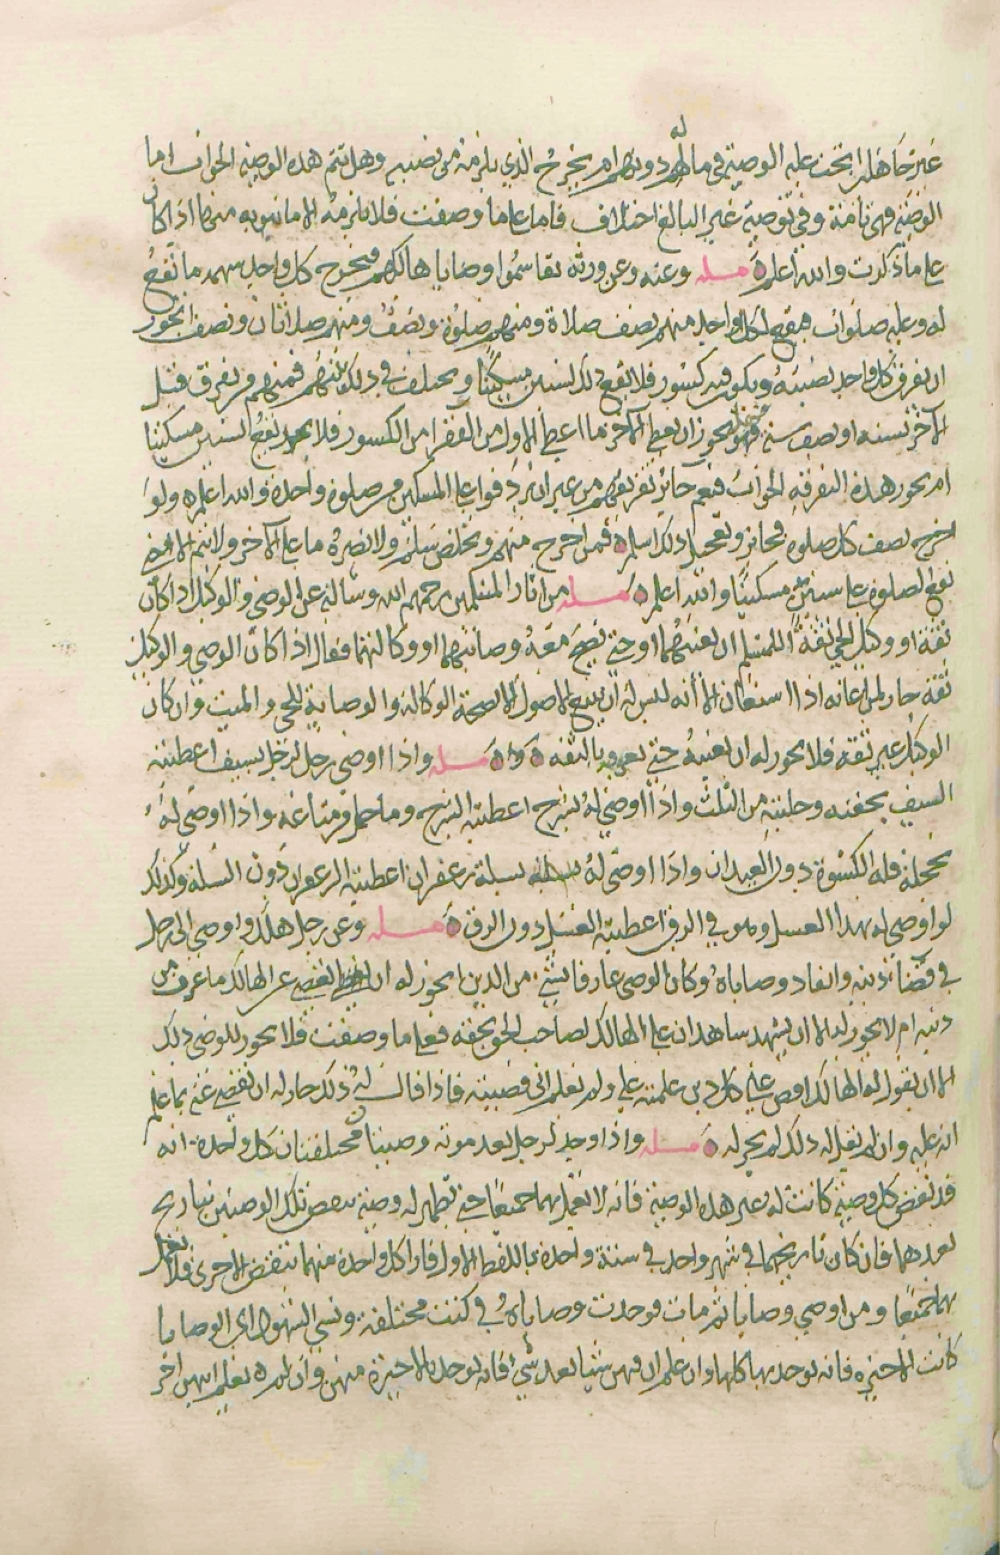 غيره حا هل اتجب عليه الوصية في ماله دونهم ام يخرج الذي يلزمه من نصيبه وهل تتم هذه الوصية الجواب اما
الوصية فهي تامة وفي توصية غير البالغ اختلاف فاما على ما وصفت فلا يلزمه الا ما ينوبه منها اذا كان
على ما ذكرت والله أعلم مسله وعنه وعن ورثة تقاسموا وصايا هالكهم فيخرج كل واحد سهمه ما تقع
له وعليه صلوات فيقع لكل واحد منهم نصف صلاة ومنهم صلوة ونصف ومنهم صلاتان ونصف ايجوز
ان يفرق كل واحد نصيبه ويكون فيه كسور فلا يقع ذلك لستين مسكينا ويختلف في ذلك بينهم فمنهم من يفرق قبل
الاخر بسنه او نصف سنه يجوز ان يعطي الاخر ما اعطى الاول من الفقراء من الكسور فلا يقع لستين مسكينا
ام يجوز هذه التفرقة الجواب فنعم جائز تفريقهم من غير ان يزدفوا على المسكين من صلوة واحدة والله اعلم ولو
اخرج نصف كل صلوة فجائز وتعجيل ذلك اسلم فمن اخرج منهم وتخلص سلم ولا يضره ما على الاخر ولا يتم الا
توقع الصلوة على ستين مسكينا والله اعلم مسله من اثار المسلمين رحمهم الله وسالته عن الوصي والوكيل اذا كان
ثقة او وكيل الحي ثقة اللمسلم ان يعينهما او حتى يصح معه وصايتهما او وكالتهما فقال اذا كان الوصي والوكيل
ثقة جاز لمن اعانه اذا استعان الا أنه ليس له ان يبيع الاصول الا بصحة الوكالة والوصاية للحي والميت وان كان
الوكيل غير ثقة فلا يجوز له ان يعينه حتى يعرفه بالثقه مسله واذا اوصى رجل لرجل بسيف اعطيته
السيف بجفنه وحليته من الثلث واذا اوصى له بسرج اعطيته السرج وما حمل من متاعه واذا اوصى له
بحجلة فله الكسوة دون العيدان واذا اوصى له بسلة زعفران اعطيته الزعفران دون السلة وكذلك
لو اوصى له بهذا العسل وهو في الزق اعطيته العسل دون الزق مسله وعن رجل هلك واوصى الى رجل
في قضاء دينه وانفاد وصاياه وكان الوصي عارفا بشيء من الدين ايجوز له ان يقضي عن الهالك ما عرف من
دينه ام لا يجوز له الا ان يشهد شاهدان على الهالك لصاحب الحق بحقه فعلى ما وصفت فلا يجوز للوصي ذلك
الا ان يقول له الهالك اقض عني كل دين علمته علي ولم تعلم اني قضيته فاذا قال له ذلك جاز له ان يقضي عنه بما علم
انه عليه وان لم يقل له ذلك لم يجز له مسله واذا وجد لرجل بعد موته وصيتان مختلفتان كل واحدة انه
قد نقض كل وصية كانت له غير هذه الوصية فانه لا يعمل بهما جميعا حتى تظهر له وصية بنقض تلك الوصيتين بتاريخ
بعدهما فان كان تاريخهما في شهر واحد في سنة واحدة باللفظ الاول فاذا كل واحدة منهما تنقض الاخرى فلا يعمل
بهما جميعا ومن اوصى وصايا ثم مات فوجدت وصاياه في كتب مختلفة ونسي الشهود اي الوصايا
كانت الاخيرة فانه يوخد بها كلها وان علم ان فيهن شيئا بعد شيء فانه يوخد بالاخيرة منهن وان لم يعلم ايهن اخر